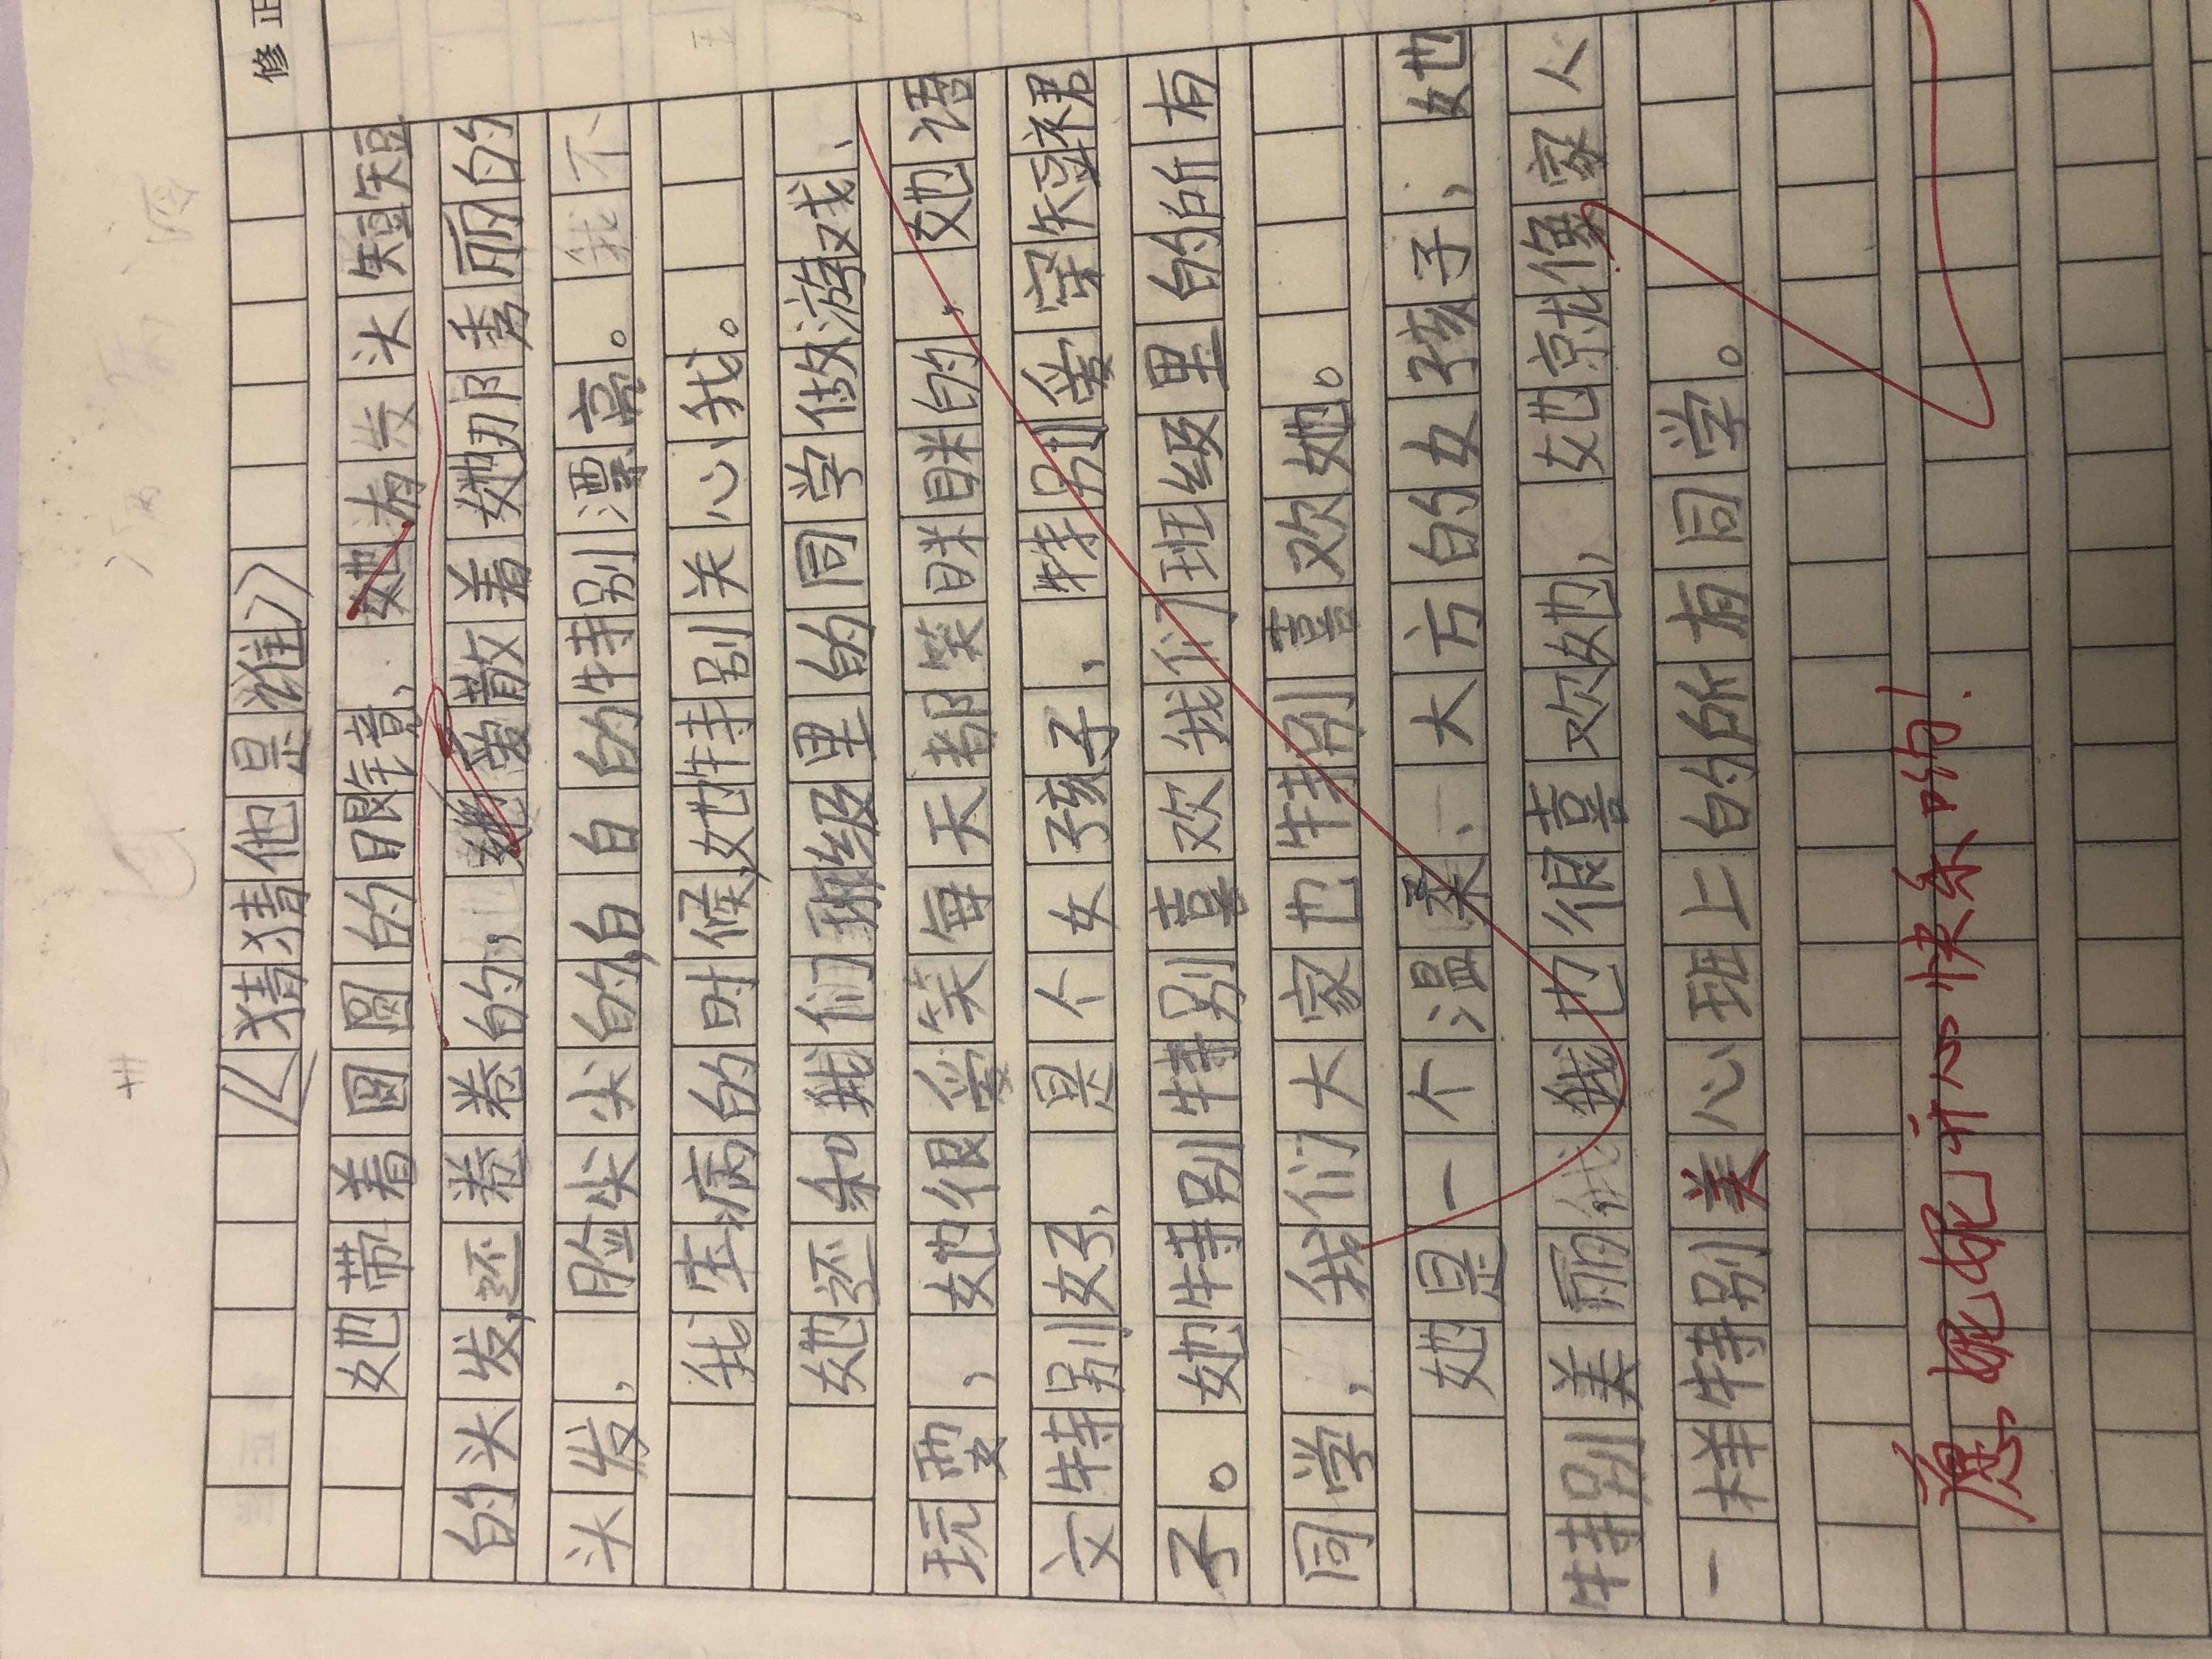 修正
《猜猜他是谁》
她带着圆圆的眼镜，她有发头短短
的头发，还卷卷的，她爱散着她那秀丽的
头发，脸尖尖的，白白的特别漂亮。我不
我生病的时候，她特别关心我。
她还和我们班级里的同学做游戏、
玩耍，她很爱笑每天都笑眯眯的，她语
文特别好，是个女孩子，特别爱穿短裙
子。她特别特别喜欢我们班级里的所有
同学，我们大家也特别喜欢她。
她是一个温柔、大方的女孩子，她
特别美丽我也很喜欢她，她就像家人
一样特别美心班上的所有同学。
愿妮妮开心快乐哟！